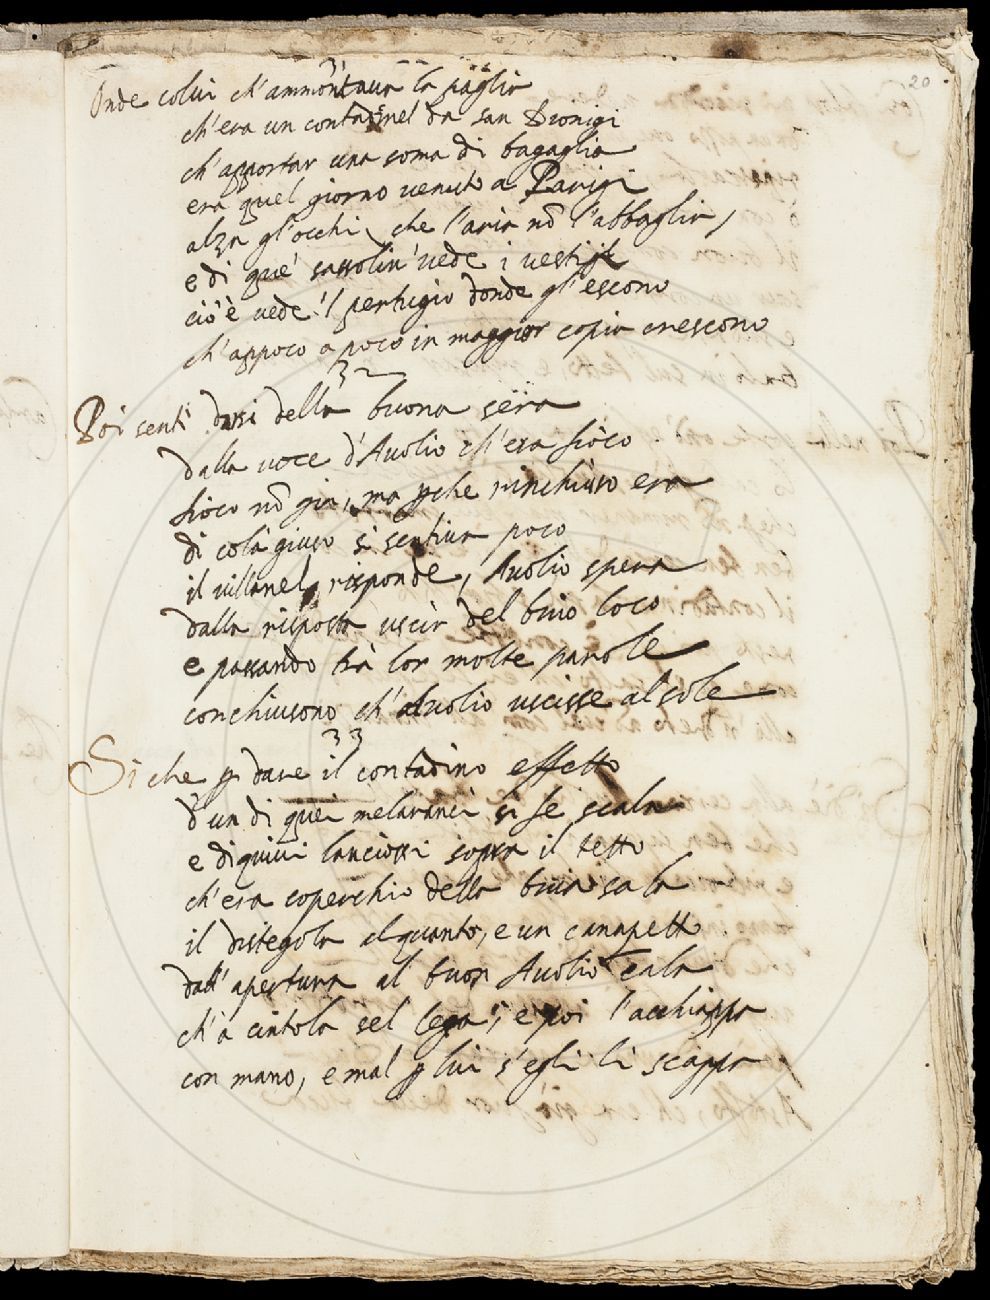 20
31
Onde colui ch'ammontaua la paglia
ch'era un contadinel da san Dionigi
ch'apportar una soma di bagaglia
era quel giorno uenuto a Parigi
alza gl'occhi, che l'aria nõ l'abbaglia,
e di que' sassolin' uede i uestigi
ciò è uede 'l pertugio donde gl'escono
ch'appoco a poco in maggior copia crescono
32
Poi sentì darsi della buona sera
dalla uoce d'Auolio ch'era fioco
fioco nõ già, ma pche rinchiuso era
di colà giuso si sentiua poco
il uillanel risponde, Auolio spera
dalla risposta uscir del buio loco
e passando trà lor molte parole
conchiusono ch'Auolio uscisse al sole
33
Si che p dare il contadino effetto
d'un di quei melaranci si fe scala
e di quiui lanciossi sopra il tetto
ch'era coperchio della buia sala
il distegola alquanto, e un canapetto
dall'apertura al buon Auolio cala
ch'a cintola sel lega, e poi l'acchiappa
con mano, e mal p lui s'egli li scappa